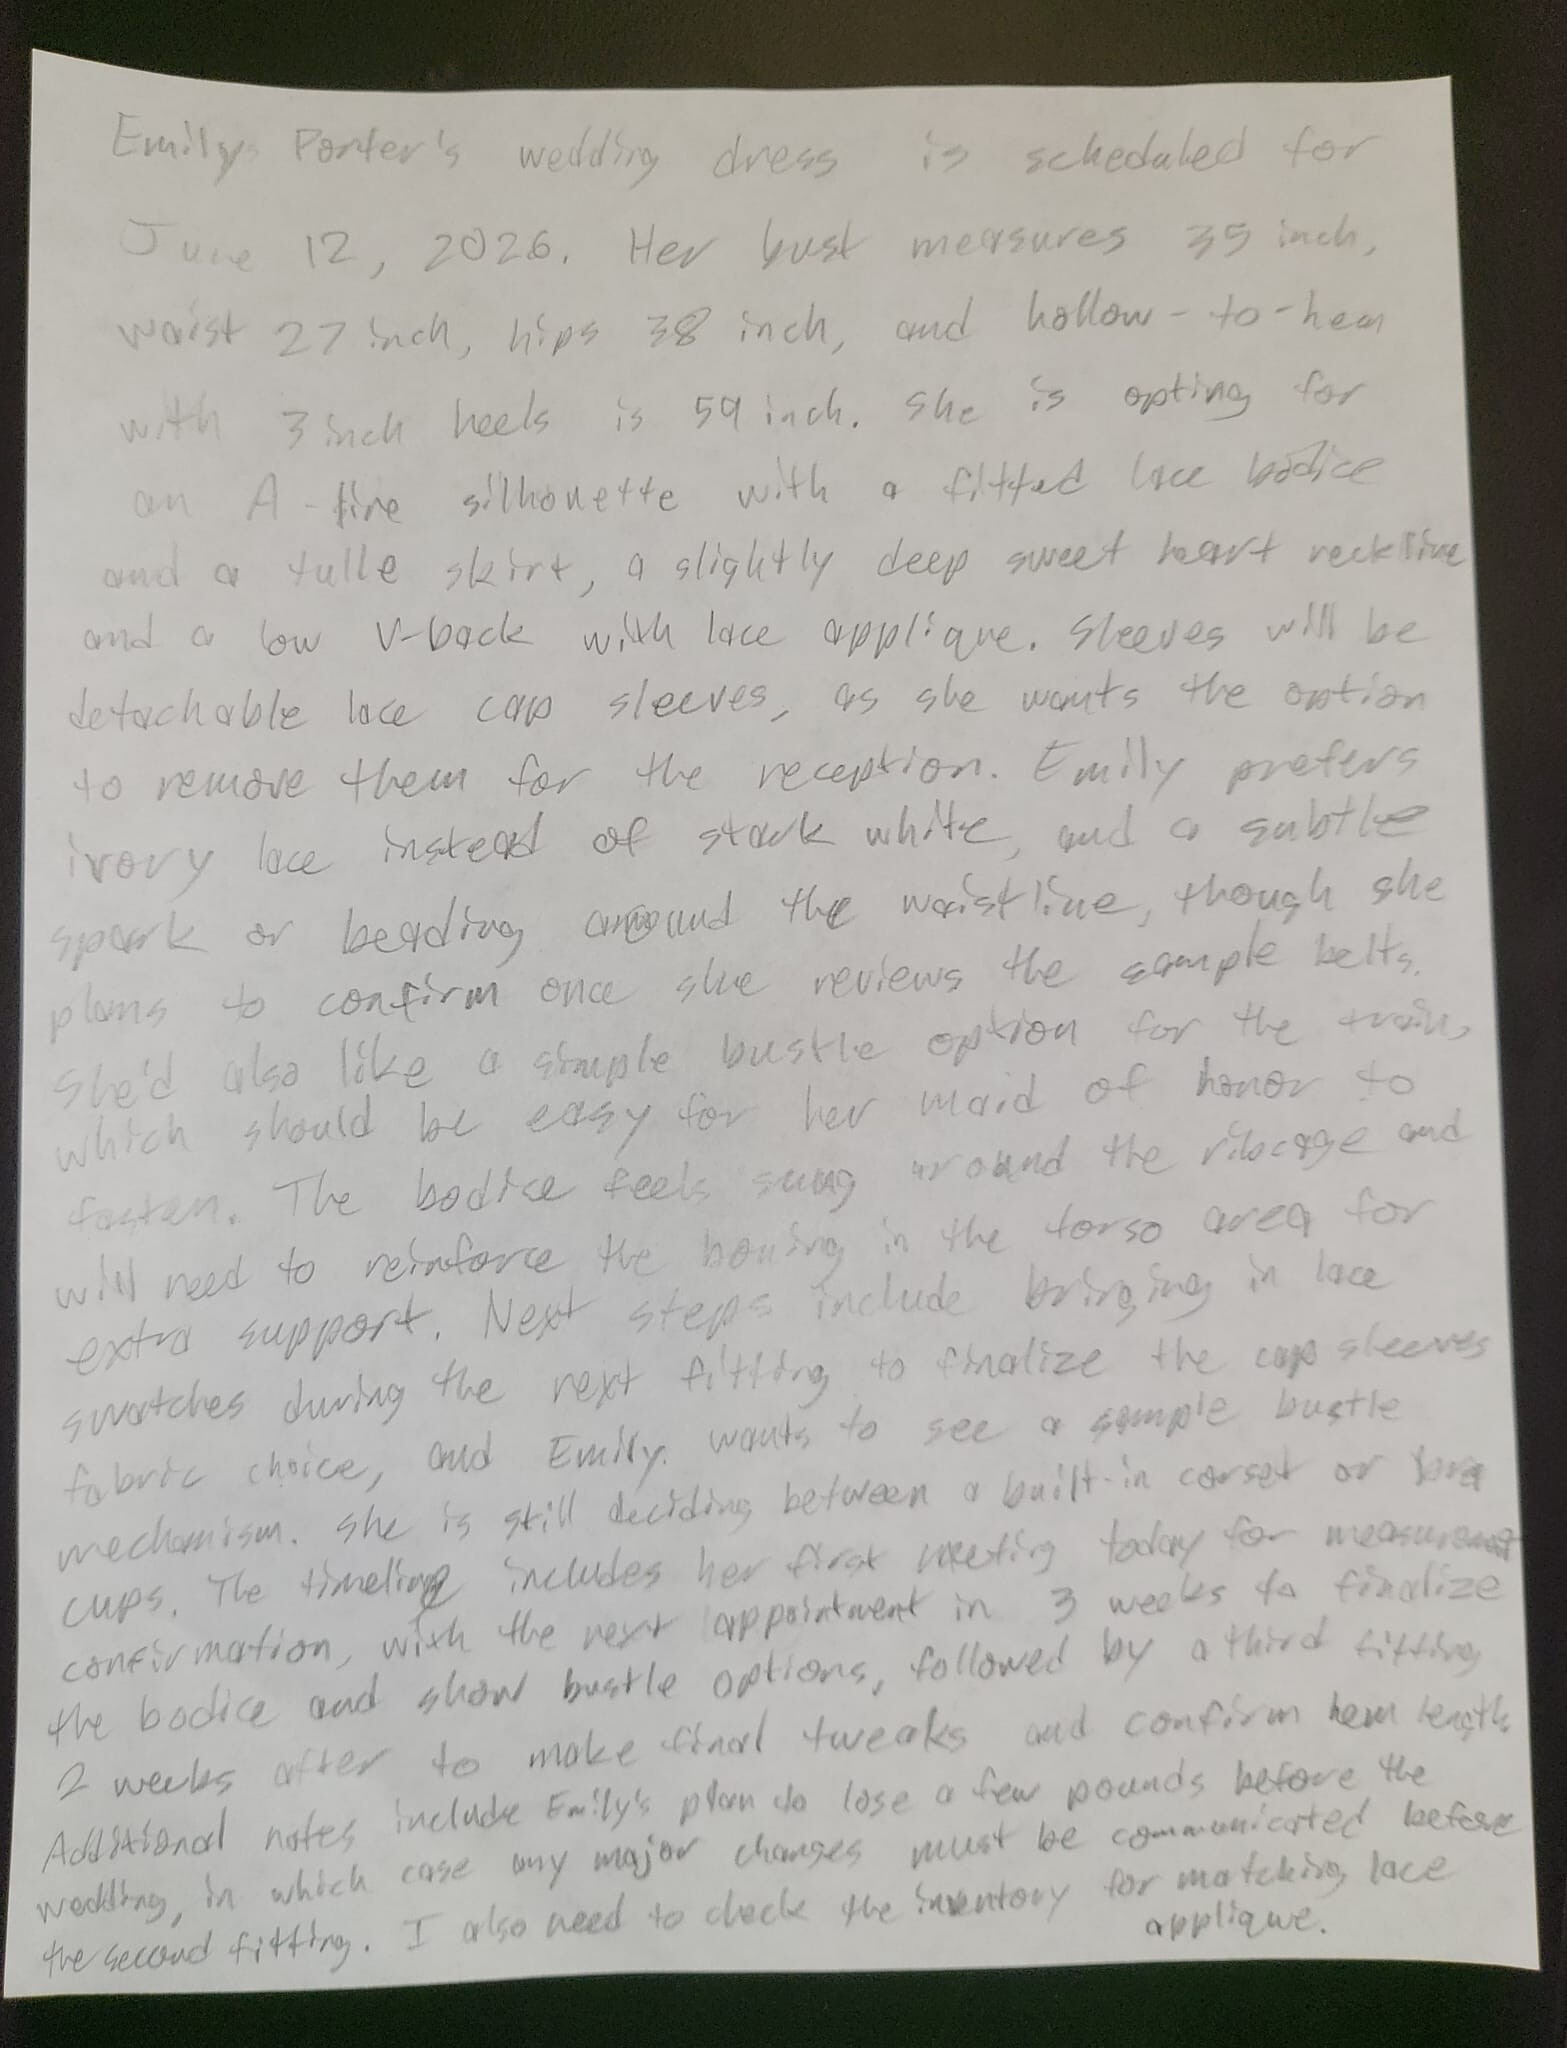 Emilys Porter's wedding dress is scheduled for
June 12, 2026. Her bust measures 35 inch,
waist 27 inch, hips 38 inch, and hollow-to-hem
with 3 inch heels is 59 inch. She is opting for
an A-line silhouette with a fitted lace bodice
and a tulle skirt, a slightly deep sweet heart neckline
and a low V-back with lace applique. Sleeves will be
detachable lace cap sleeves, as she wants the option
to remove them for the reception. Emily prefers
ivory lace instead of stark white, and a subtle
spark or beading around the waistline, though she
plans to confirm once she reviews the sample belts.
She'd also like a simple bustle option for the train,
which should be easy for her maid of honor to
fasten. The bodice feels snug around the ribcage and
will need to reinforce the boning in the torso area for
extra support. Next steps include bringing in lace
swatches during the next fitting to finalize the cap sleeves
fabric choice, and Emily. wants to see a sample bustle
mechanism. She is still deciding between a built-in corset or bra
cups. The timeling includes her first meeting today for measurement
confirmation, with the next appointment in 3 weeks to finalize
the bodice and show bustle options, followed by a third fitting
2 weeks after to make final tweaks and confirm hem length
Additional notes include Emily's plan to lose a few pounds before the
wedding, in which case any major changes must be communicated before
the second fitting. I also need to check the inventory for matching lace
applique.